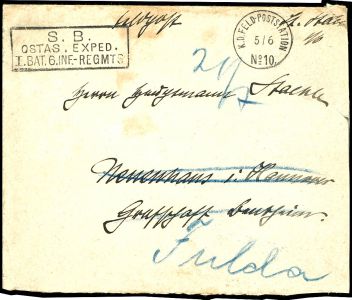 Feldpost
S. B.
OSTAS. EXPED.
I. BAT. 6. INF.-REGMTS
K.D. FELD-POSTSTATION
5/6
No 10.
21/7
Herrn Hauptmann
Neuenhaus i. Hannover
Grafschaft Bentheim.
Fulda